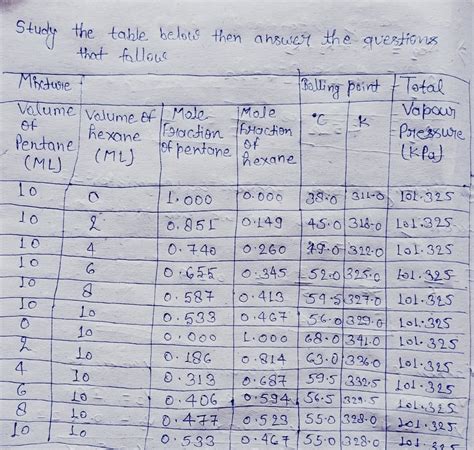 Study the table below then answer the questions
that follow
Mixture Boiling point Total
Volume of Pentane (ML) Volume of hexane (ML) Mole Fraction of pentane Mole Fraction of hexane °C K Vapour Pressure (KPa)
10 0 1.000 0.000 38.0 311.0 101.325
10 2 0.851 0.149 45.0 318.0 101.325
10 4 0.740 0.260 49.0 322.0 101.325
10 6 0.655 0.345 52.0 325.0 101.325
10 8 0.587 0.413 54.5 327.0 101.325
10 10 0.533 0.467 56.0 329.0 101.325
0 10 0.000 1.000 68.0 341.0 101.325
2 10 0.186 0.814 63.0 336.0 101.325
4 10 0.313 0.687 59.5 332.5 101.325
6 10 0.406 0.594 56.5 329.5 101.325
8 10 0.477 0.523 55.0 328.0 101.325
10 10 0.533 0.467 55.0 328.0 101.325